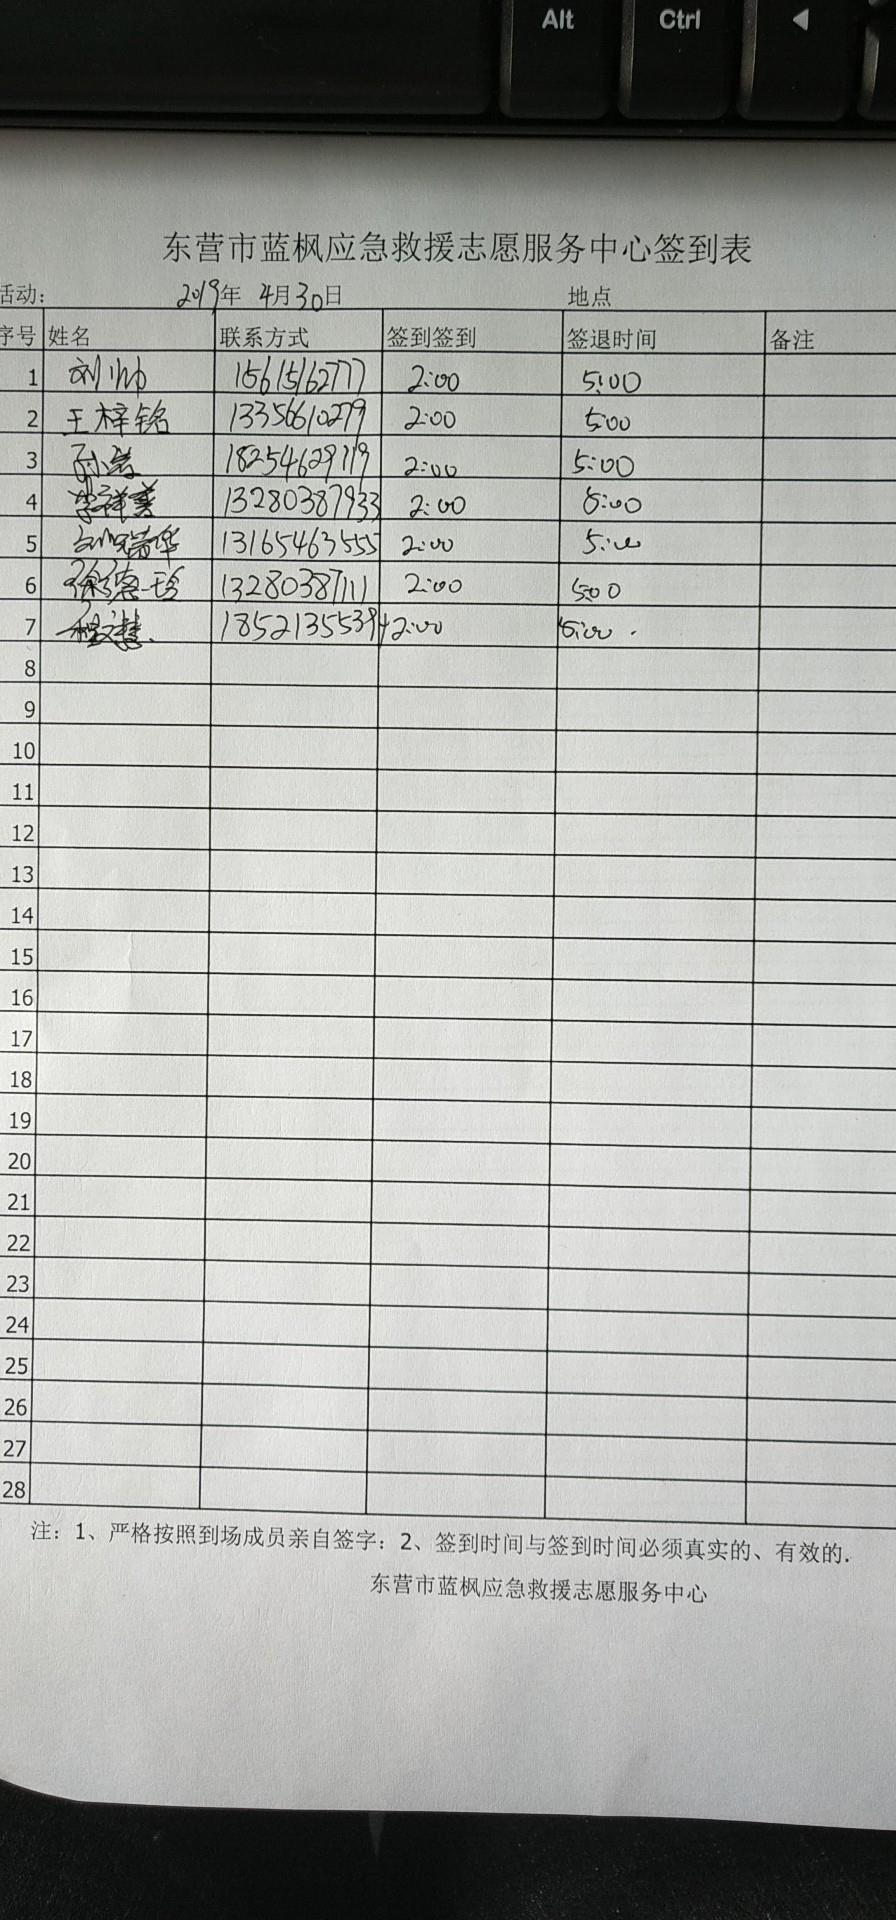 Alt Ctrl ◀
东营市蓝枫应急救援志愿服务中心签到表
活动: 2019年 4月30日 地点
序号 姓名 联系方式 签到签到 签退时间 备注
1 刘帅 15615162777 2:00 5:00
2 王梓铭 13356610279 2:00 5:00
3 18254629119 2:00 5:00
4 李祥美 13280387933 2:00 5:00
5 13165463555 2:00 5:00
6 13280387111 2:00 5:00
7 18521355394 2:00 5:00
8
9
10
11
12
13
14
15
16
17
18
19
20
21
22
23
24
25
26
27
28
注: 1、严格按照到场成员亲自签字: 2、签到时间与签到时间必须真实的、有效的.
东营市蓝枫应急救援志愿服务中心